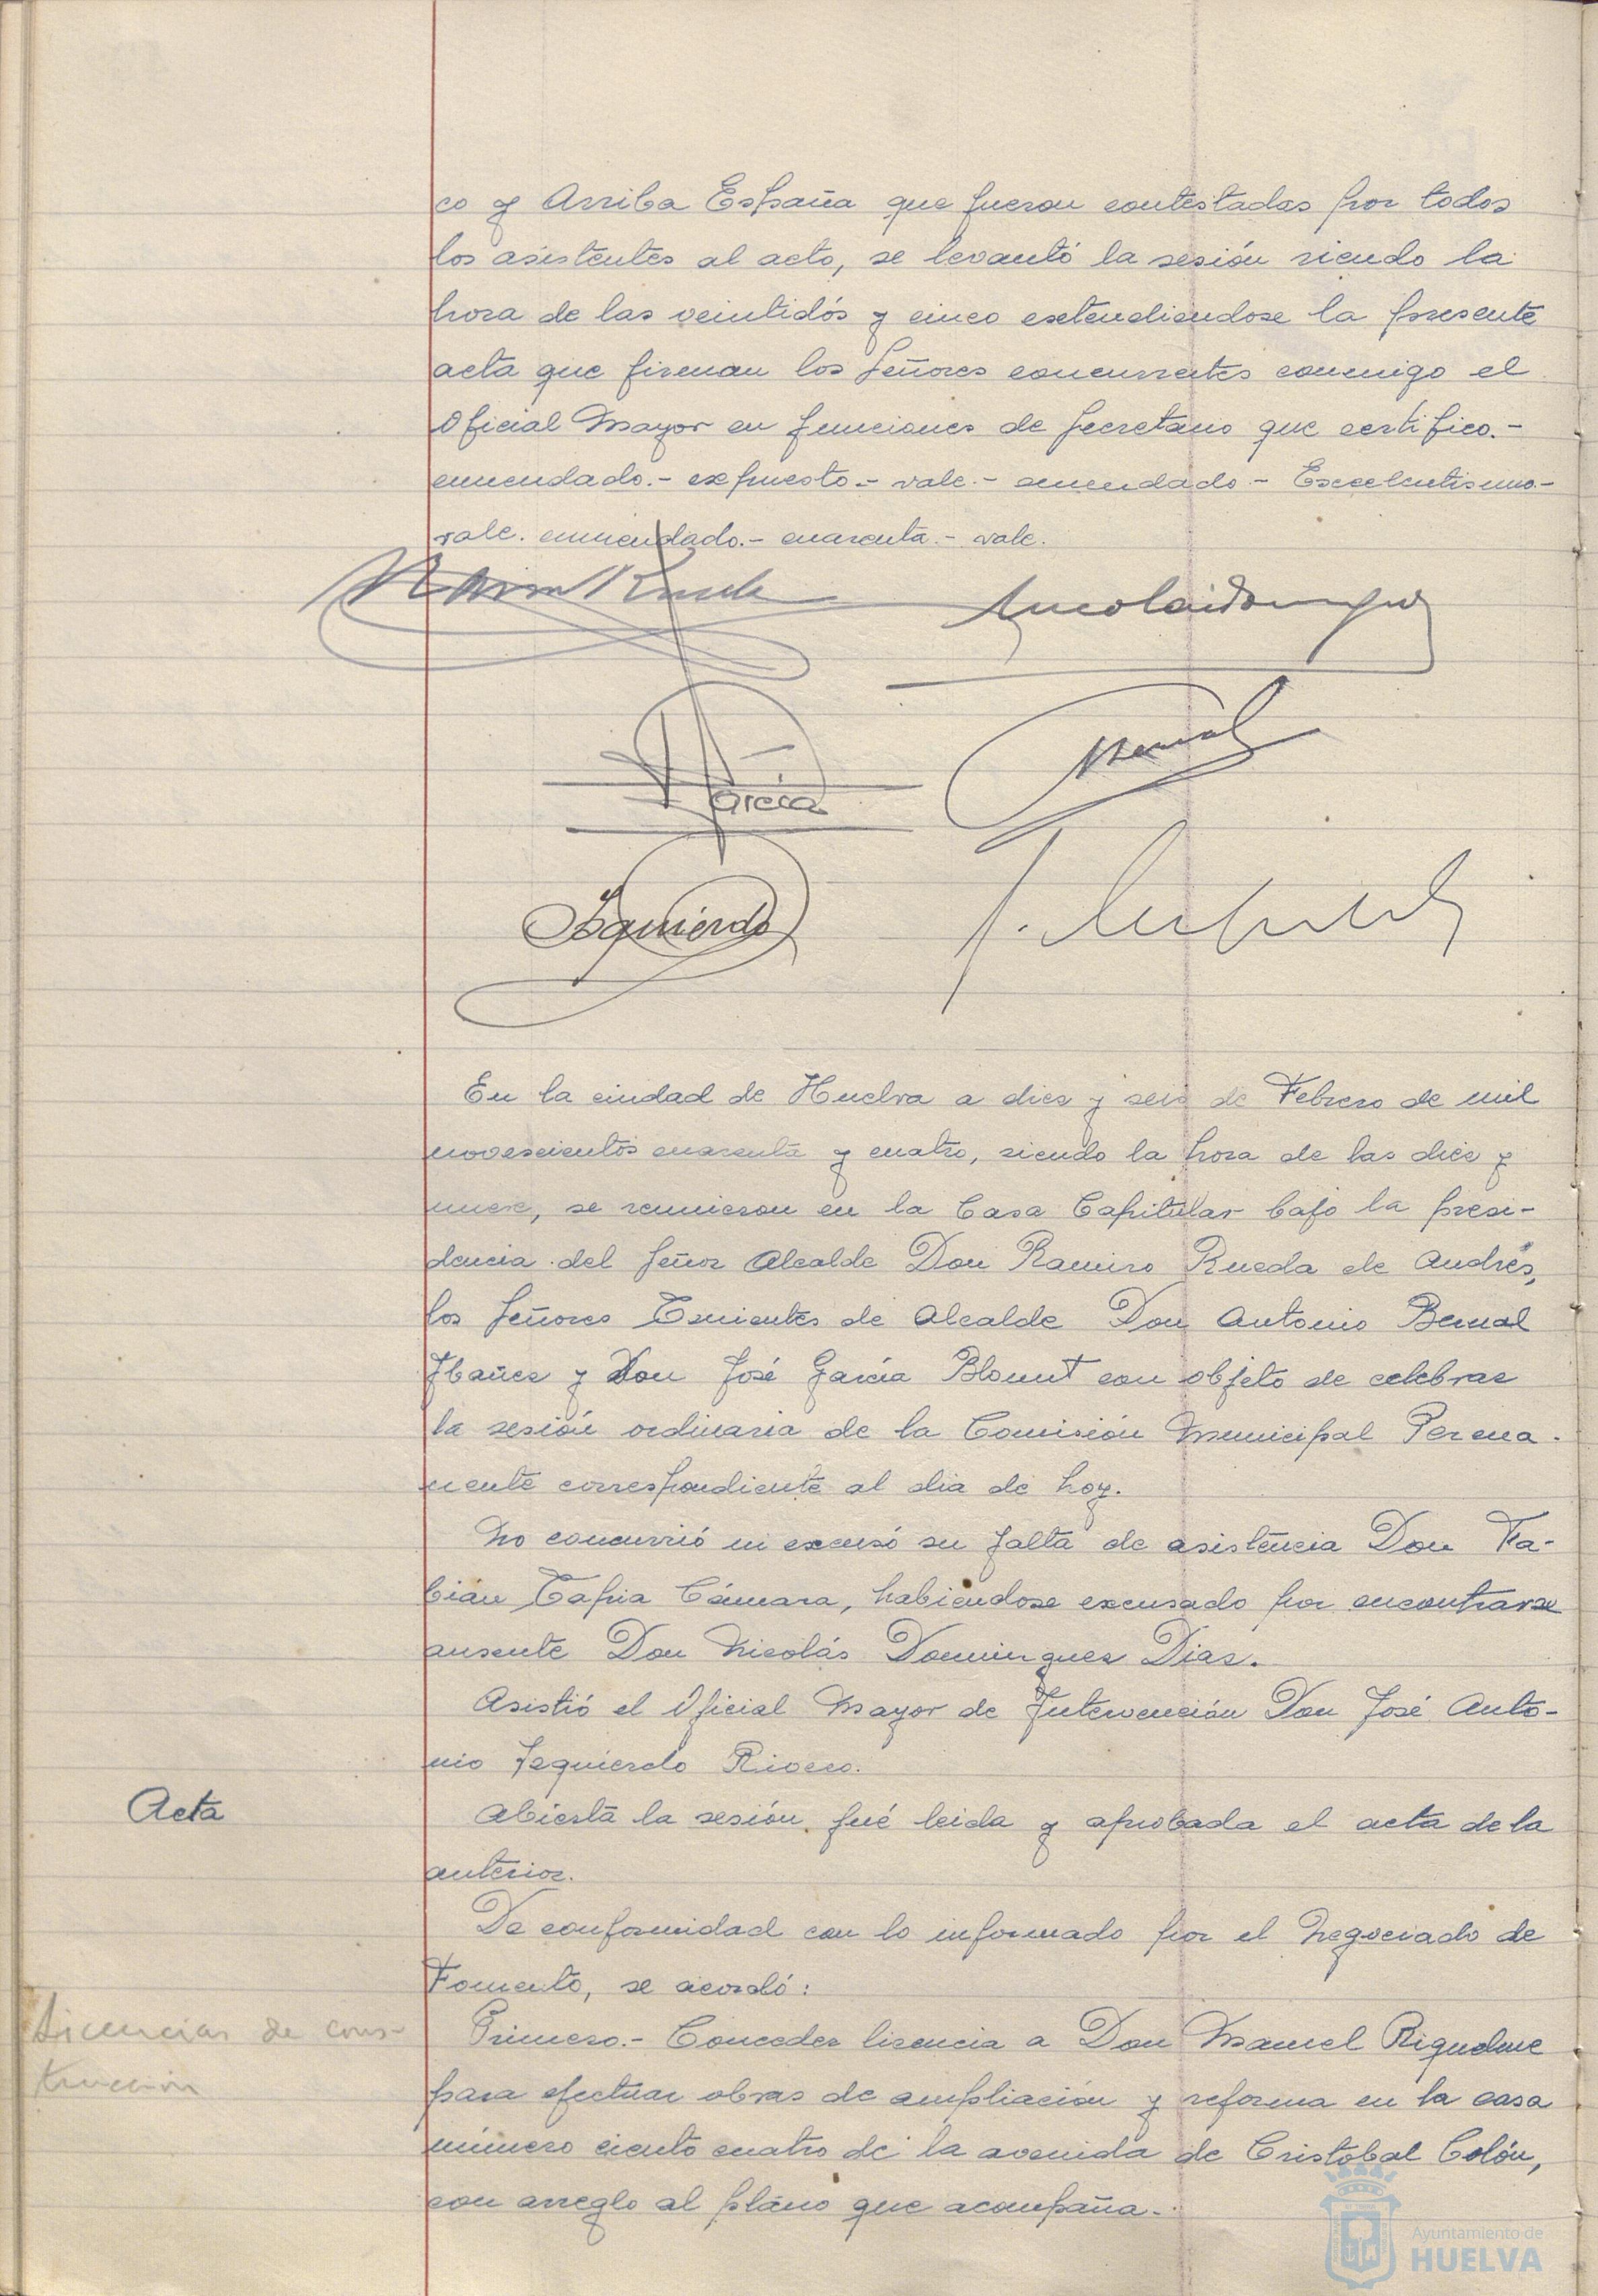 co y Arriba España que fueron contestadas por todos
los asistentes al acto, se levantó la sesión siendo la
hora de las veintidós y cinco extendiendose la presente
acta que firman los Señores concurrentes conmigo el
Oficial Mayor en funciones de Secretario que certifico.-
enmendado.- expuesto.- vale.- enmendado.- Excelentisimo.-
vale. enmendado.- cuarenta.- vale.
Ramiro Rueda
Nicolás Dominguez
Bernal
García
Izquierdo
En la ciudad de Huelva a diez y seis de Febrero de mil
novescientos cuarenta y cuatro, siendo la hora de las diez y
nueve, se reunieron en la Casa Capitular bajo la presi-
dencia del Señor Alcalde Don Ramiro Rueda de Andrés,
los Señores Tenientes de Alcalde Don Antonio Bernal
Ibañez y Don José García Blount con objeto de celebrar
la sesión ordinaria de la Comisión Municipal Perma-
nente correspondiente al dia de hoy.
No concurrió ni excusó su falta de asistencia Don Fa-
bián Tapia Cámara, habiendose excusado por encontrarse
ausente Don Nicolás Dominguez Diaz.
Asistió el Oficial Mayor de Intervención Don José Anto-
nio Izquierdo Rivero.
Acta
Abierta la sesión, fué leida y aprobada el acta de la
anterior.
De conformidad con lo informado por el Negociado de
Fomento, se acordó:
Licencias de cons-
trucción
Primero.- Conceder licencia a Don Manuel Riquelme
para efectuar obras de ampliación y reforma en la casa
número ciento cuatro de la avenida de Cristobal Colón,
con arreglo al plano que acompaña.-
Ayuntamiento de
HUELVA